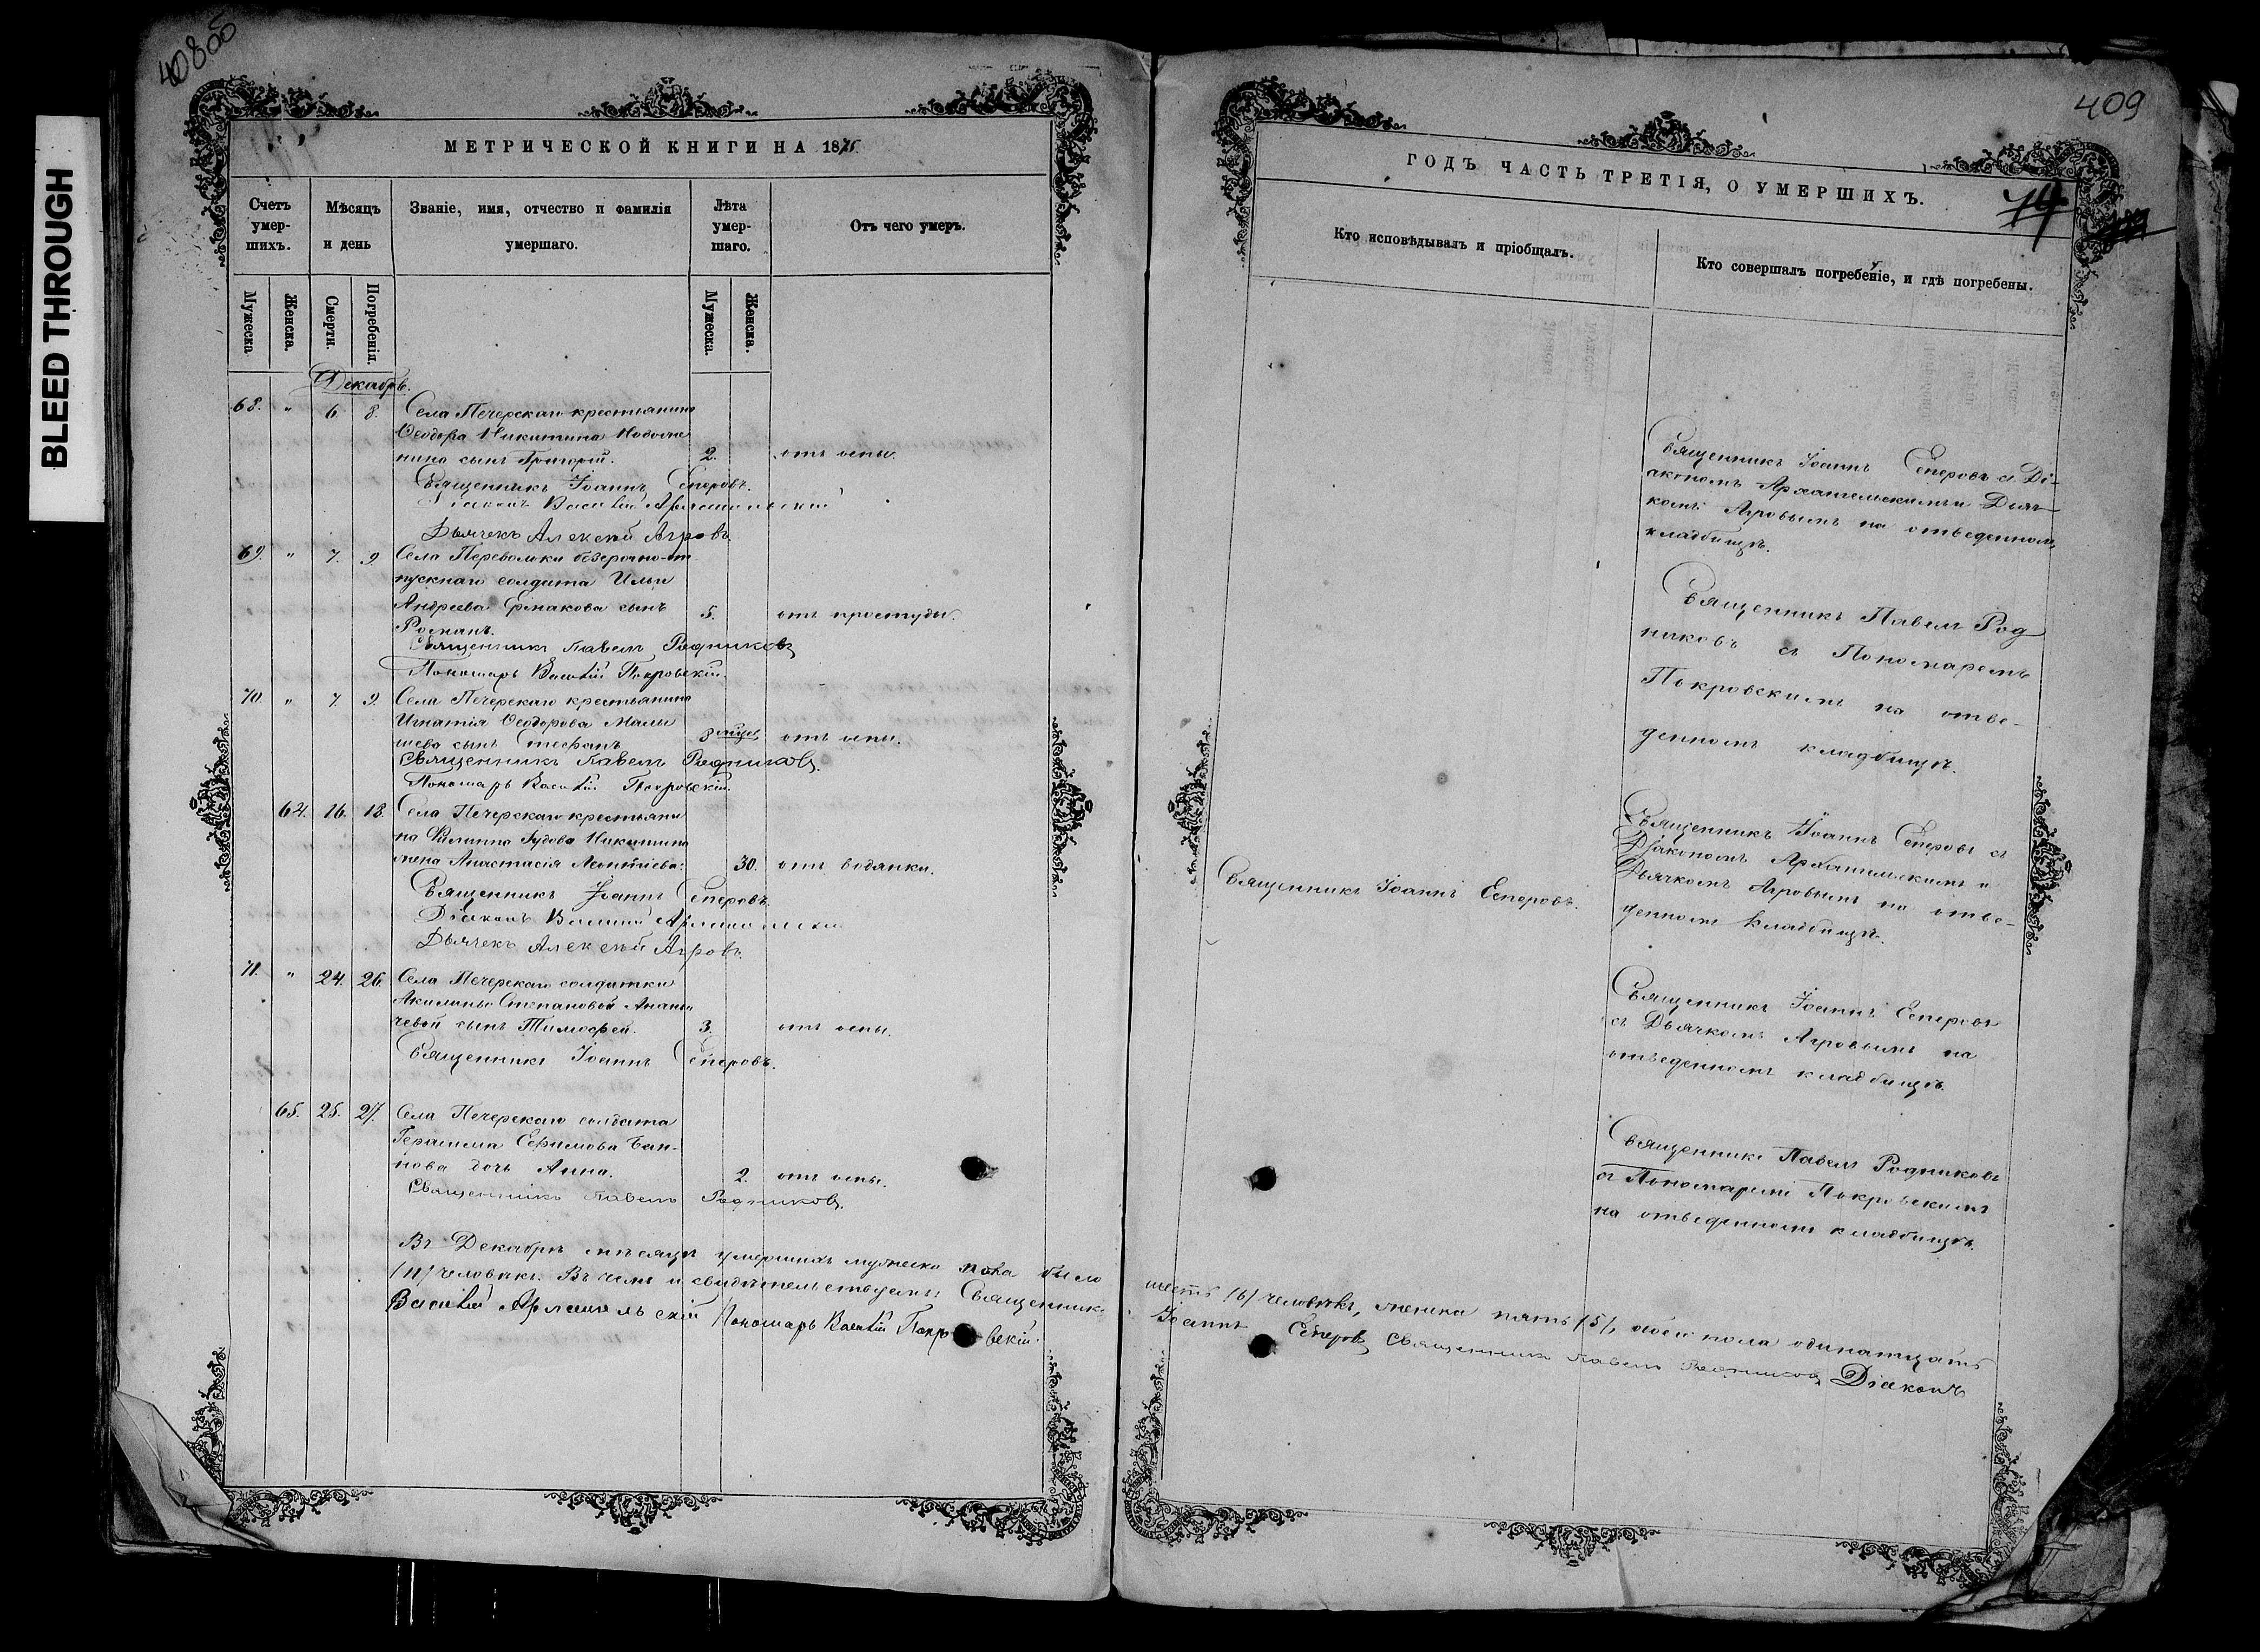 BLEED THROUGH
408об
МЕТРИЧЕСКОЙ КНИГИ НА 1875.
Счетъ умер-шихъ.
Мѣсяцъ и день
Званіе, имя, отчество и фамилія умершаго.
Лѣта умер-шаго.
Отъ чего умеръ.
Мужеска
Женска.
Смерти.
Погребенія.
Мужеска.
Женска.
Декабрь.
68. " 6. 8. Села Печерскаго крестьянина
Ѳеодора Никитина
нина сынъ Григорій. 2. отъ оспы.
Священникъ Іоаннъ Есперовъ.
Діаконъ Василій Архангельскій
Дьячекъ Алексѣй Агровъ
69. " 7. 9. Села Переволоки безсрочно-от
пускнаго солдата Ильи
Андреева Ермакова сынъ 5. отъ простуды.
Романъ.
Священникъ Павелъ Родниковъ
Пономарь Василій Покровскій.
70. " 7. 9. Села Печерскаго крестьянина
Игнатія Ѳеодорова Малы
шева сынъ Стефанъ 3 мѣсяц отъ оспы.
Священникъ Павелъ Родниковъ.
Пономарь Василій Покровскій.
64. 16. 18. Села Печерскаго крестьяни
на Филиппа Никитина
жена Анастасія Леонтіева. 30. отъ водянки.
Священникъ Іоаннъ Есперовъ.
Діаконъ Василій Архангельскій
Дьячекъ Алексѣй Агровъ.
71. " 24. 26. Села Печерскаго солдатки
Акилины Степановой Анань
чевой сынъ Тимоѳей. 3. отъ оспы.
Священникъ Іоаннъ Есперовъ.
65. 25. 27. Села Печерскаго солдата
Герасима Ефимова
нова дочь Анна. 2. отъ оспы.
Священникъ Павелъ Родниковъ.
Въ Декабрѣ мѣсяцѣ умершихъ мужеска пола было
/11/ человѣкъ. Въ чемъ и свидѣтельствуемъ: Священникъ
Василій Архангельскій Пономарь Василій Покровскій.
409
ГОДЪ ЧАСТЬ ТРЕТІЯ, О УМЕРШИХЪ.
Кто исповѣдывалъ и пріобщалъ.
Кто совершалъ погребеніе, и гдѣ погребены.
Священникъ Іоаннъ Есперовъ съ Ді-
акономъ Архангельскимъ и Дьяч-
комъ Агровымъ на отведенномъ
кладбищѣ.
Священникъ Павелъ Род
никовъ съ Пономаремъ
Покровскимъ на отве-
денномъ кладбищѣ.
Священникъ Іоаннъ Есперовъ.
Священникъ Іоаннъ Есперовъ съ
Діакономъ Архангельскимъ и
Дьячкомъ Агровымъ на отве-
денномъ кладбищѣ.
Священникъ Іоаннъ Есперовъ
съ Дьячкомъ Агровымъ на
отведенномъ кладбищѣ.
Священникъ Павелъ Родниковъ
съ Пономаремъ Покровскимъ
на отведенномъ кладбищѣ.
шесть /6/ человѣкъ, женска пять /5/, обоего пола одинатцать
Іоаннъ Есперовъ Священникъ Павелъ Родниковъ Діаконъ